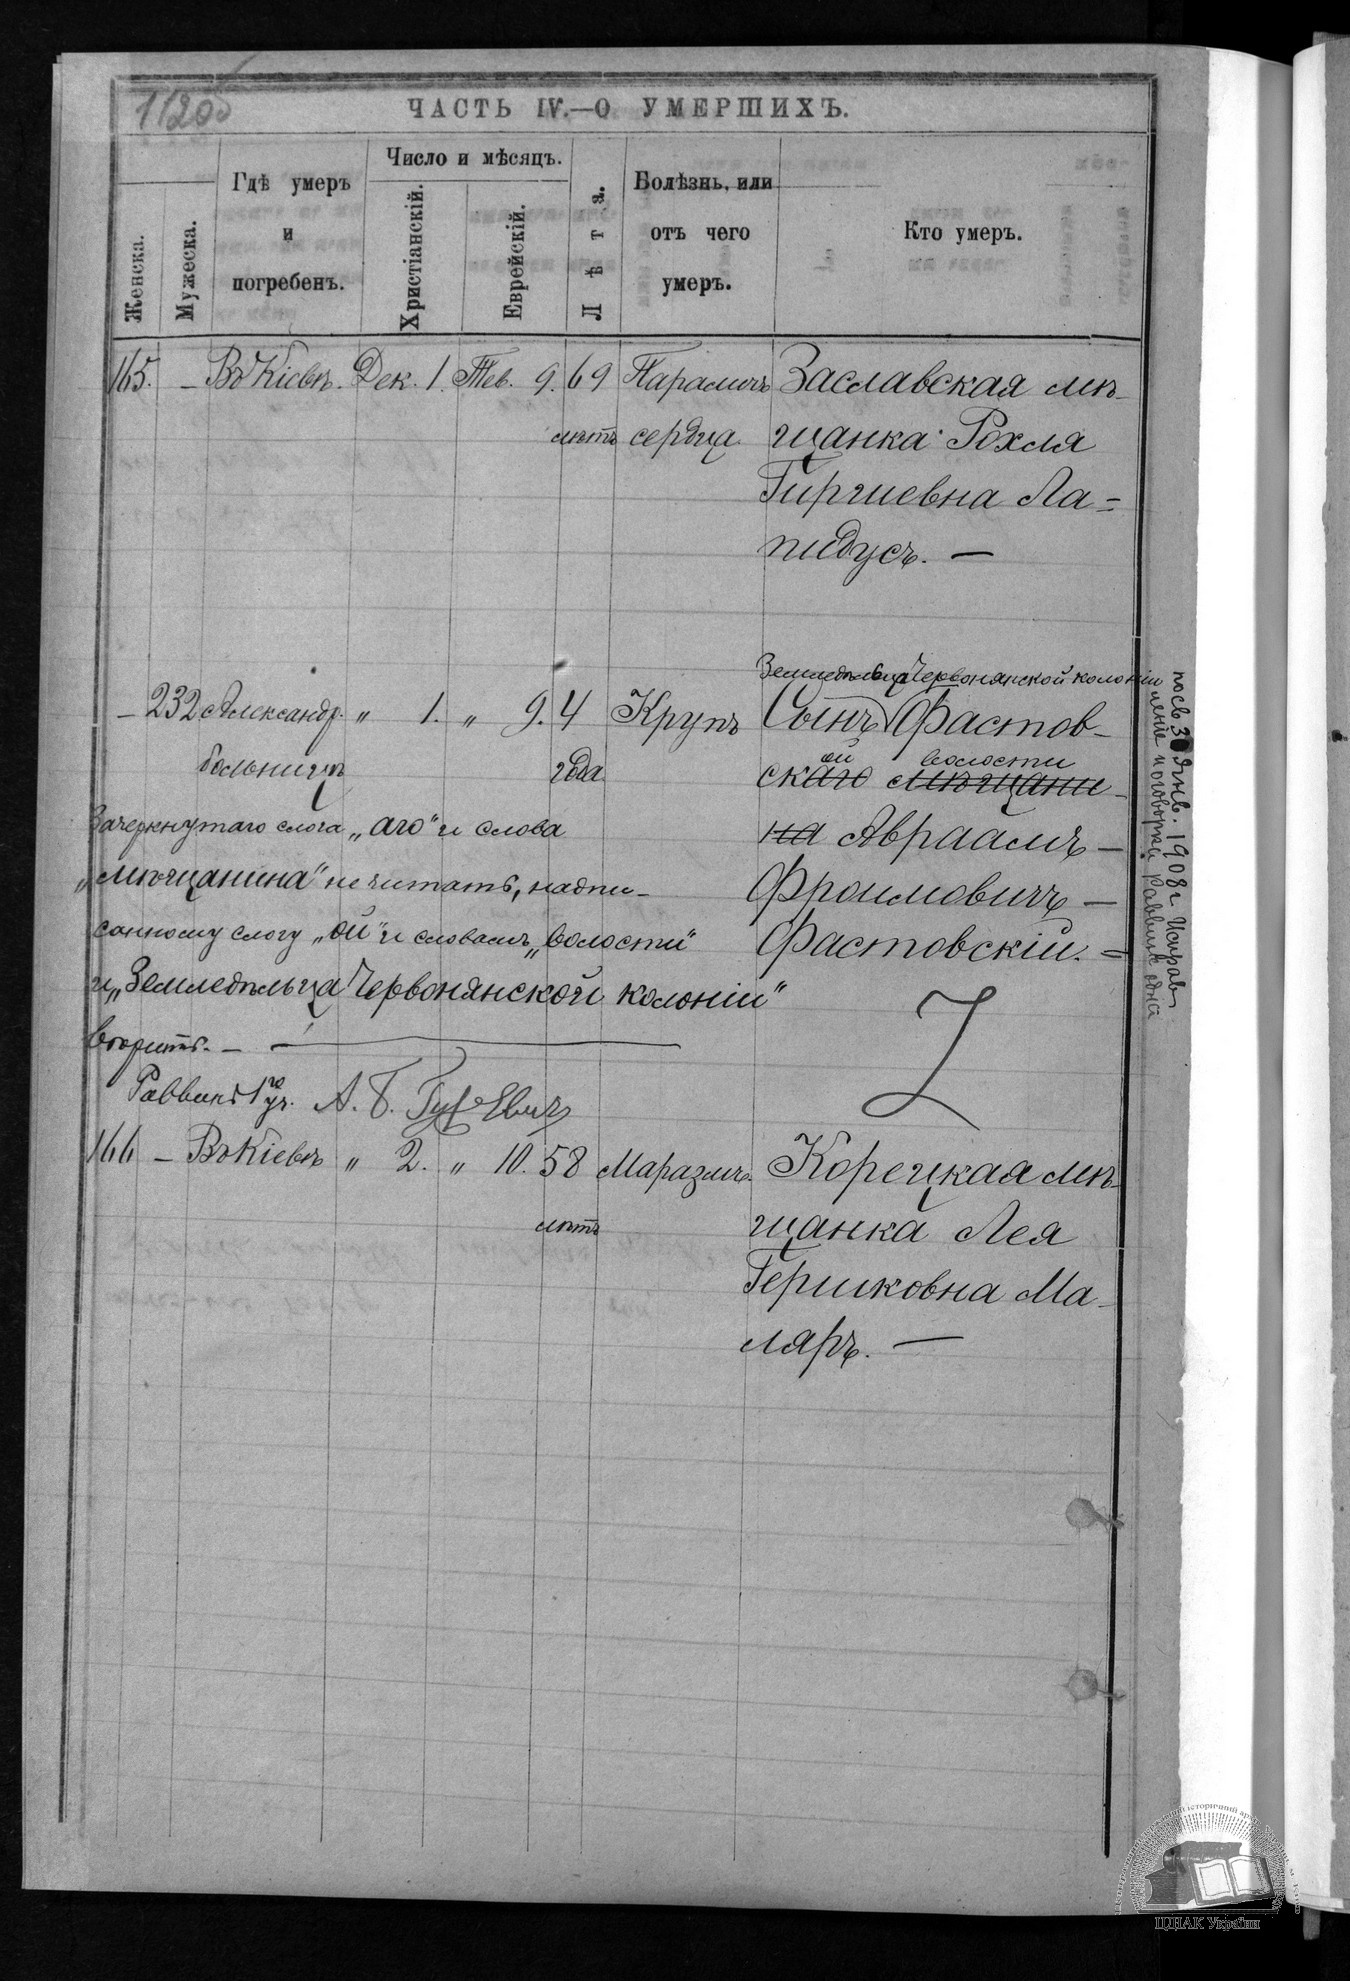 ЧАСТЬ IV.—О УМЕРШИХЪ.
Женска.
Мужеска.
Гдѣ умеръ
и
погребенъ.
Число и мѣсяцъ.
Христіанскій.
Еврейскій.
Лѣта.
Болѣзнь, или
отъ чего
умеръ.
Кто умеръ.
165. — Въ Кіевѣ. Дек. 1. Тев. 9. 69 Параличъ Заславская мѣ-
лѣтъ сердца. щанка Рохля
Гиршевна Ла-
пидусъ. —
Земледѣльца Червонянской колоніи
— 232 Александр. " 1. " 9. 4 Крупъ Сынъ Фастов-
ой волости
больницѣ года скаго мѣщани-
Зачеркнутаго слога „аго" и слова
на Авраамъ —
„мѣщанина" не читать, надпи-
Фроимовичъ —
санному слогу „ой" и словамъ „волости"
Фастовскій. =
и „Земледѣльца Червонянской колоніи"
вѣрить. —
Раввинъ 1го уч. А. Б. Гуревичъ
166 — Въ Кіевѣ " 2. " 10. 58 Маразмъ. Корецкая мѣ-
лѣтъ щанка Лея
Гершковна Ма-
ляръ. —
Янв. 1908 г Исправ
леніе
ЦДІАК України